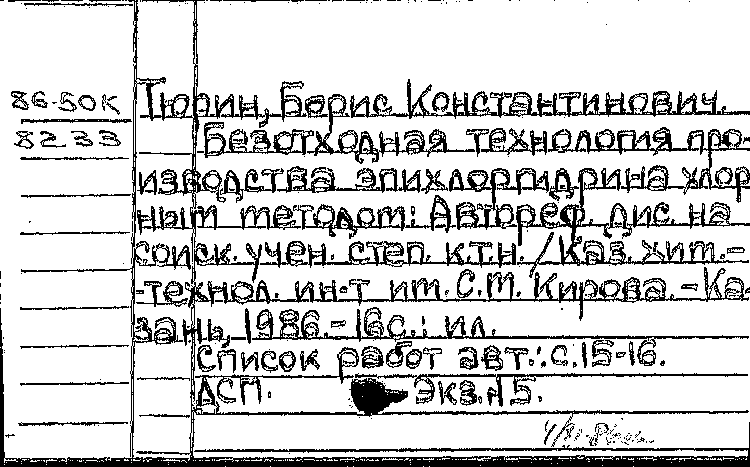 86-50К Тюрин, Борис Константинович.
8233 Безотходная технология про-
изводства эпихлоргидрина хлор
ным методом: Автореф. дис. на
соиск. учен. степ. к.т.н. /Каз. хим.-
-технол. ин-т им. С.М. Кирова. - Ка-
зань, 1986. - 16с.: ил.
Список работ авт.: с. 15-16.
ДСП. Экз. 15.